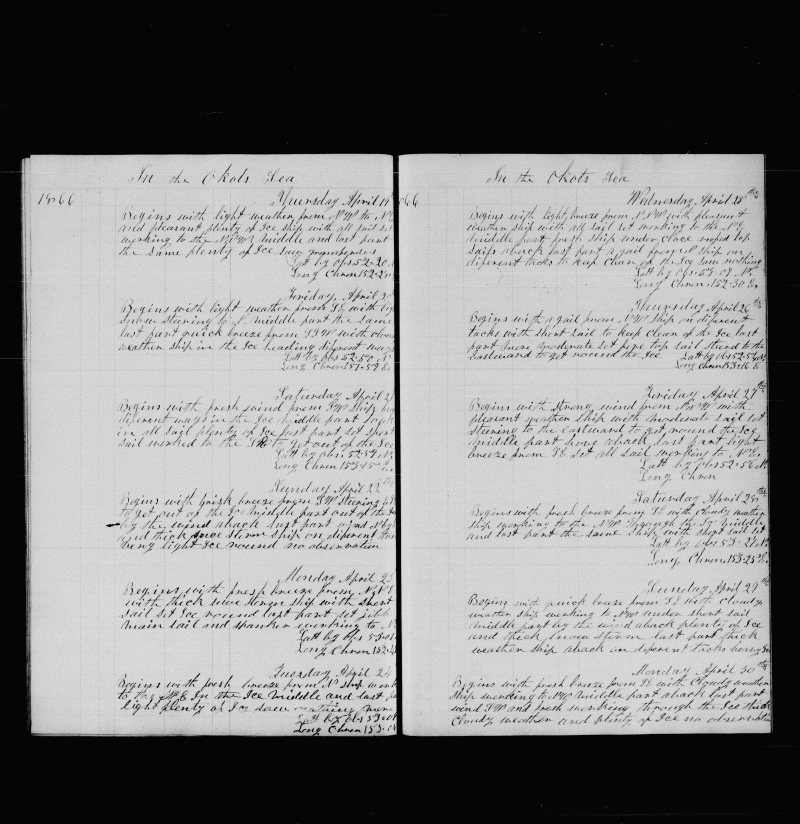 In the Okots Sea
1866
Thursday April 19
Begins with light weather from N W to N
and pleasant plenty of Ice ship with all sail set
working to the N, middle and last part
the same plenty of Ice saw
Latt by Obs 52-20 N
Long Chron 152-25
Friday, April 20
Begins with light weather from S E with
snow Steering to middle part the same
last part quick breeze from S W with cloudy
weather ship in the Ice heading diferent ways
Latt by Obs 52-50 N
Long Chron 151-59 E
Saturday April 21
Begins with fresh wind from S W Ship
diferent ways in the Ice middle part
in all sail plenty of Ice last part set
sail worked to the to get out of the Ice
Latt by Obs. 52-54 N
Long Chron 153-15 E
Sunday April 22
Begins with brisk breeze from S W Steering
to get out of the Ice middle part out of the
by the wind aback last part wind N
and thick snow storm ship on diferent
being light Ice round no observation
Monday April 23
Begins with fresh breeze from N,
with thick snow storm ship with short
sail set Ice round last part set jibb
main sail and spanker working to N
Latt by Obs 53-01
Long Chron 152
Tuesday April 24
Begins with fresh breeze from N ship
to the In the Ice middle and last
light plenty of Ice saw
Latt by Obs 53-01
Long Chron 153-
In the Okots Sea
66
Wednesday April 25th
Begins with light breeze from N, N W with pleasant
weather ship with all sail set working to the N E
middle part fresh ship under close reefed top
sails aback last part a gail from N ship on
diferent tacks to keep Clear of the Ice saw nothing
Latt by Obs 53-07 N
Long Chron 152-30 E.
Thursday April 26th
Begins with a gail from N W ship on diferent
tacks with short sail to keep Clear of the Ice last
part more moderate set top sail steerd to the
Eastward to get round the Ice Latt by Obs 52-52 N
Long Chron 153-16 E
Friday April 27th
Begins with strong wind from N W with
pleasant weather ship with moderate sail set
steering to the eastward to get round the Ice
middle part aback last part light
breeze from S E set all sail working to N E.
Latt by Obs 52-56 N
Long Chron
Saturday April 28th
Begins with fresh breeze from S E with Cloudy weather
ship working to the N W through the Ice middle
and last part the same ship with short sail set
Latt by Obs 53-21 N.
Long Chron 153-25 E.
Sunday April 29th
Begins with quick breeze from S E with cloudy
weather ship working to N W under short sail
middle part by the wind aback plenty of Ice
and thick snow storm last part thick
weather ship aback on diferent tacks
Monday April 30th
Begins with fresh breeze from S E with Cloudy weather
ship working to N W middle part aback last part
wind S W and fresh working through the Ice thick
Cloudy weather and plenty of Ice no observation